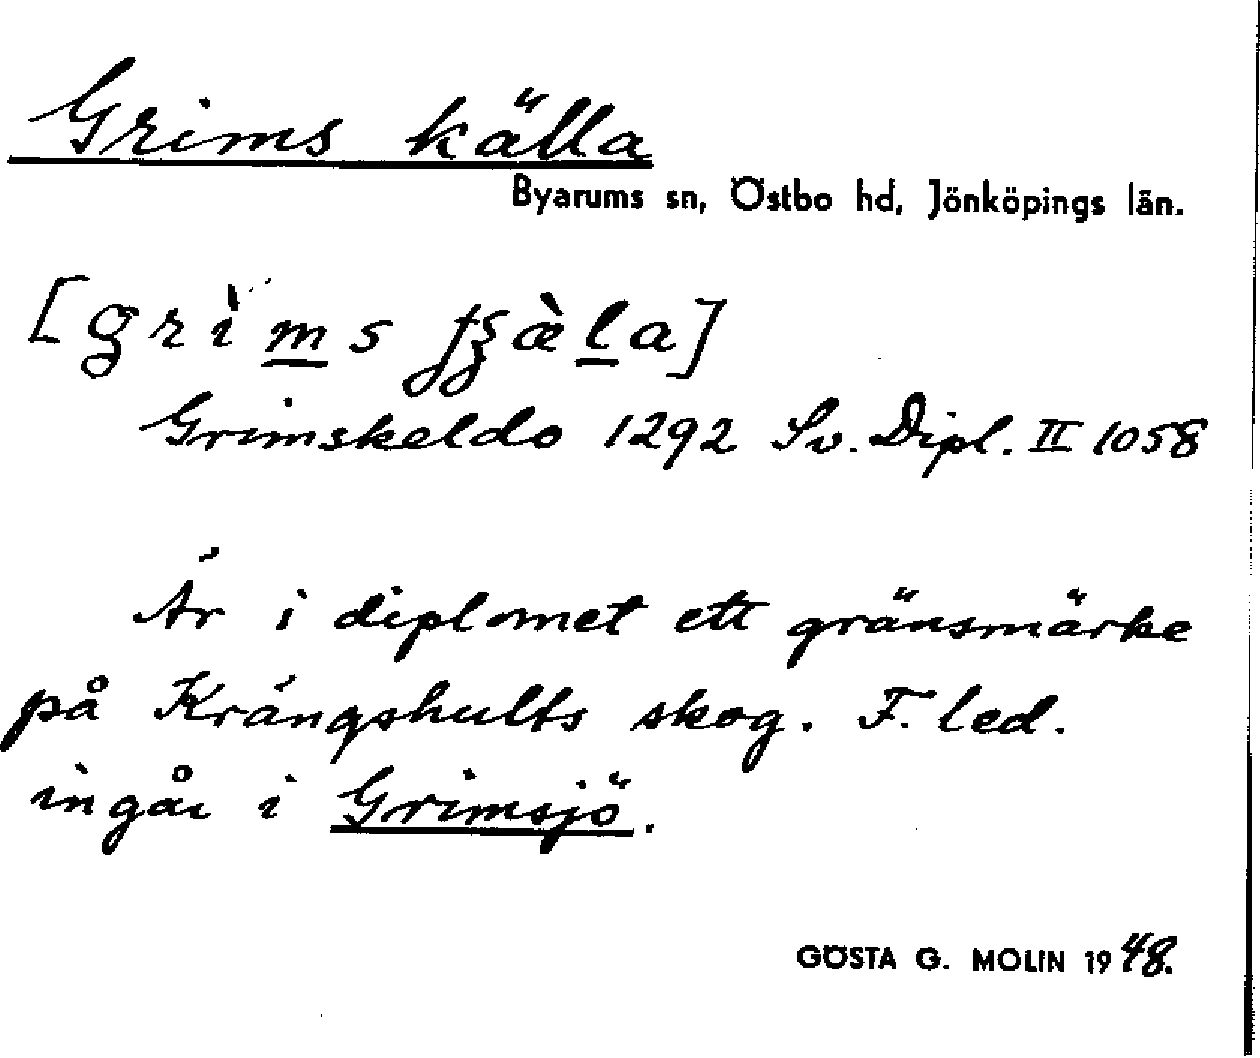 Grims källa
Byarums sn, Östbo hd, Jönköpings län.
[grìms ʃʒæ̀la]
Grimskeldo 1292 Sv. Dipl. II 1058
Är i diplomet ett gränsmärke
på Krängshults skog. F. led.
ingår i Grimsjö.
GÖSTA G. MOLIN 1948.